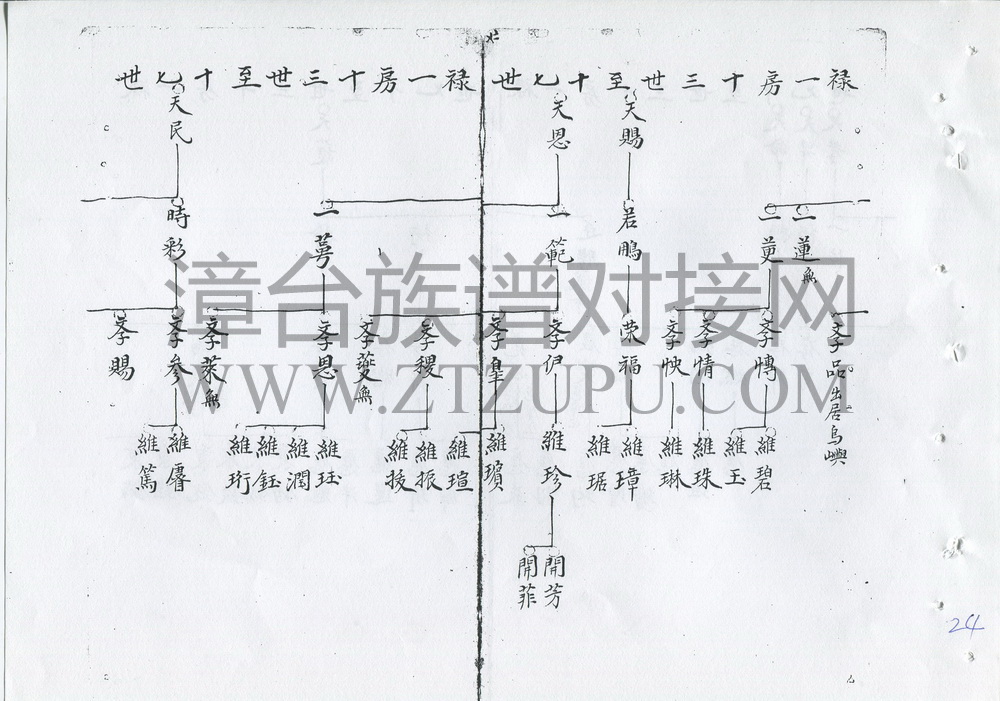 禄一房十三世至十七世
天賜
天恩
一蓮無
一更
若鵬
一範
孝品出居烏嶼
孝慱
孝情
孝
荣福
孝伊
孝皇
孝稷
孝夔無
維碧
維玉
維珠
維琳
維璋
維琚
維珍
維瑣
維瑄
維振
維技
開芳
開菲
禄一房十三世至十七世
天民
一萼
時彩
孝恩
孝萊無
孝参
孝賜
維珏
維潤
維鈺
維珩
維睿
維篤
漳台族谱对接网
WWW.ZTZUPU.COM
24